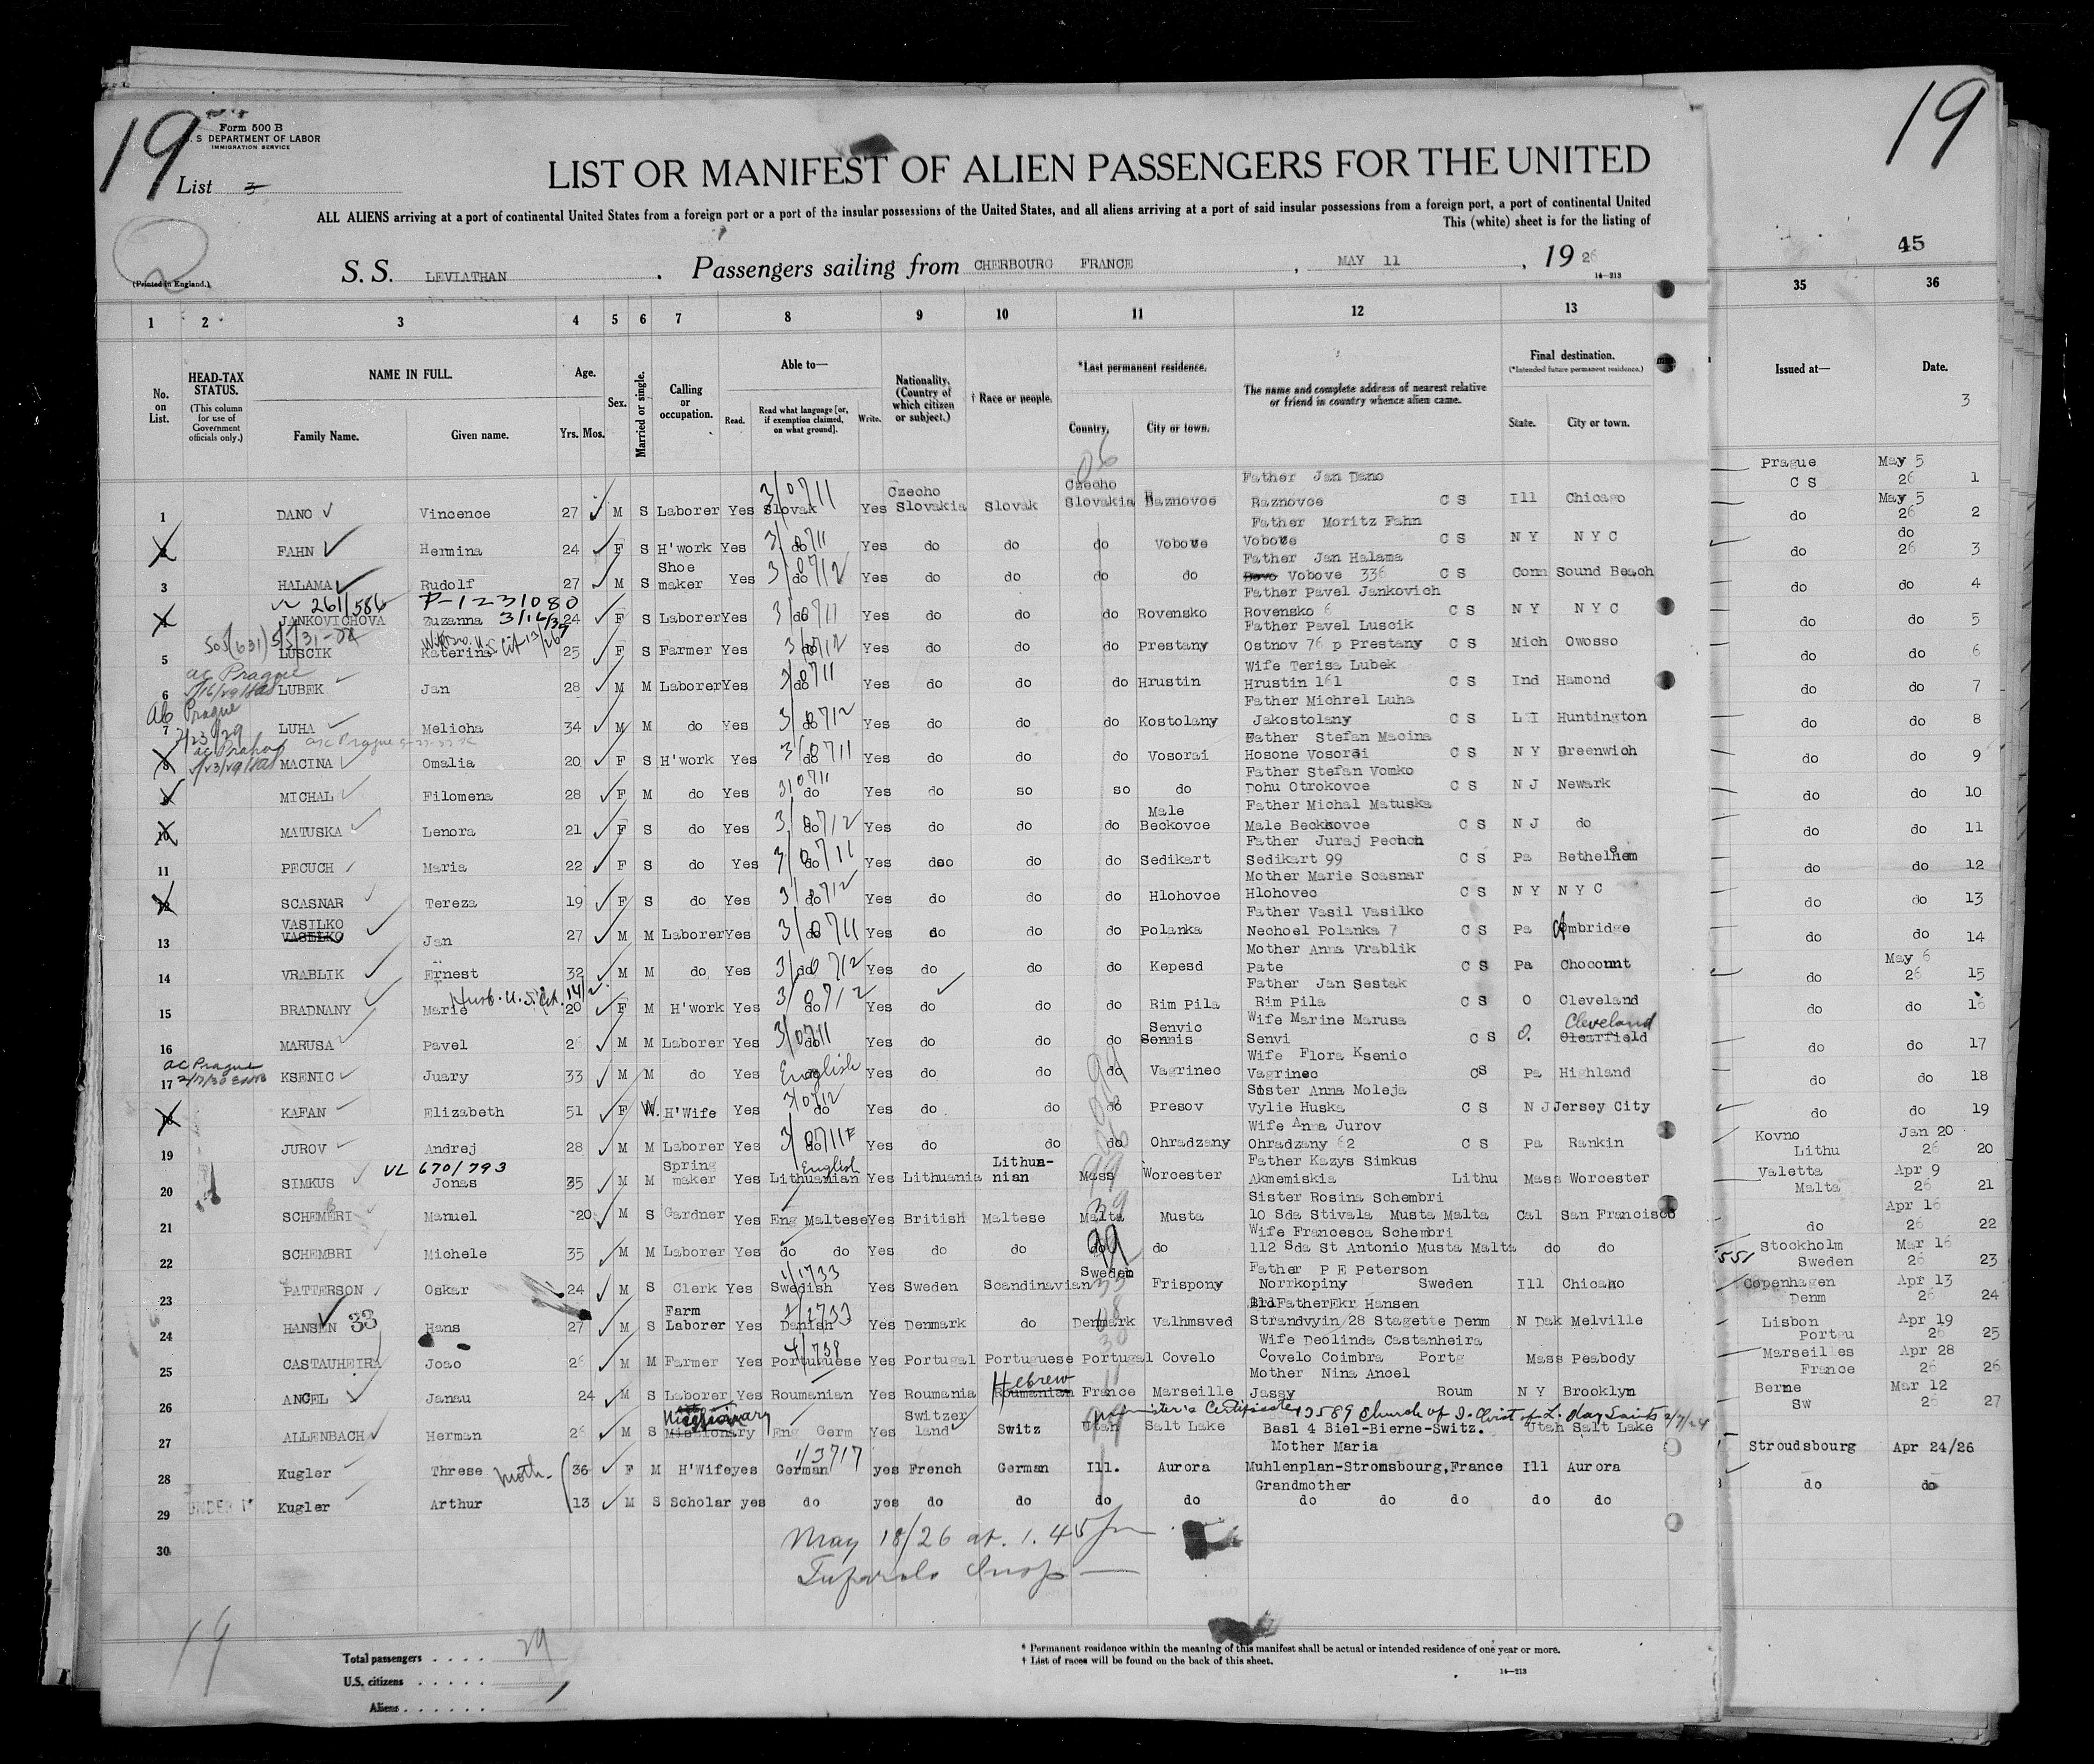 19
19
Form 500 B
S DEPARTMENT OF LABOR
IMMIGRATION SERVICE
List 3
LIST OR MANIFEST OF ALIEN PASSENGERS FOR THE UNITED
ALL ALIENS arriving at a port of continental United States from a foreign port or a port of the insular possessions of the United States, and all aliens arriving at a port of said insular possessions from a foreign port, a port of continental United
This (white) sheet is for the listing of
45
(Printed in England.)
S. S. LEVIATHAN . Passengers sailing from CHERBOURG FRANCE , MAY 11 , 19 26
14—213
1 2 3 4 5 6 7 8 9 10 11 12 13 35 36
No. on List.
HEAD-TAX STATUS.
(This column for use of Government officials only.)
NAME IN FULL.
Family Name. Given name.
Age.
Yrs. Mos.
Sex.
Married or single.
Calling or occupation.
Able to—
Read. Read what language [or, if exemption claimed, on what ground]. Write.
Nationality. (Country of which citizen or subject.)
† Race or people.
*Last permanent residence.
Country. City or town.
The name and complete address of nearest relative or friend in country whence alien came.
Final destination.
(*Intended future permanent residence.)
State. City or town.
Issued at— Date.
3
06
Father Jan Dano
1 DANO Vincence 27 M S Laborer Yes Slovak 3/0711 Yes Czecho Slovakia Slovak Czecho Slovakia Baznovce Raznovce C S Ill Chicago Prague C S May 5 26 1
Father Moritz Fahn
2 FAHN Hermina 24 F S H'work Yes do 3/0711 Yes do do do Vobove Vobove C S N Y N Y C do May 5 26 2
Father Jan Halama
3 HALAMA Rudolf 27 M S Shoe maker Yes do 3/0712 Yes do do do do Vobove 336 C S Conn Sound Beach do do 26 3
261/586 P-1231080
Father Pavel Jankovich
4 JANKOVICHOVA Zuzanna 3/16/37 24 F S Laborer Yes do 3/0711 Yes do do do Rovensko Rovensko 6 C S N Y N Y C do do 4
Father Pavel Luscik
5 LUSCIK Katerina 25 F S Farmer Yes do 3/0712 Yes do do do Prestany Ostnov 76 p Prestany C S Mich Owosso do do 5
ac Prague
Wife Terisa Lubek
6 LUBEK Jan 28 M M Laborer Yes do 3/0711 Yes do do do Hrustin Hrustin 161 C S Ind Hamond do do 6
Prague
Father Michrel Luha
7 LUHA Melicha 34 M M do Yes do 3/0712 Yes do do do Kostolany Jakostolany C S L I Huntington do do 7
Father Stefan Macina
8 MACINA Omalia 20 F S H'work Yes do 3/0711 Yes do do do Vosorai Hosone Vosorai C S N Y Greenwich do do 8
Father Stefan Vomko
9 MICHAL Filomena 28 F M do Yes do 3/0711 Yes do so so do Dohu Otrokovce C S N J Newark do do 9
Father Michal Matuska
10 MATUSKA Lenora 21 F S do Yes do 3/0712 Yes do do do Male Beckovce Male Beckkovce C S N J do do do 10
Father Juraj Pechch
11 PECUCH Maria 22 F S do Yes do 3/0711 Yes do do do Sedikart Sedikart 99 C S Pa Bethelhem do do 11
Mother Marie Scasnar
12 SCASNAR Tereza 19 F S do Yes do 3/0712 Yes do do do Hlohovce Hlohovec C S N Y N Y C do do 12
Father Vasil Vasilko
13 VASILKO Jan 27 M M Laborer Yes do 3/0711 Yes do do do Polanka Nechoel Polanka 7 C S Pa Ambridge do do 13
Mother Anna Vrablik
14 VRABLIK Ernest 32 M M do Yes do 3/0712 Yes do do do Kepesd Pate C S Pa Choconnt do do 14
Husb. U.S. Cit.
Father Jan Sestak
15 BRADNANY Marie 20 F M H'work Yes do 3/0712 Yes do do do Rim Pila Rim Pila C S O Cleveland do May 6 26 15
Wife Marine Marusa
16 MARUSA Pavel 26 M M Laborer Yes do 3/0711 Yes do do do Senvic Sennis Senvi C S O. Cleveland Clearfield do do 16
ac Prague
Wife Flora Ksenic
17 KSENIC Juary 33 M M do Yes do English Yes do do do Vagrinec Vagrinec CS Pa Highland do do 17
Sister Anna Moleja
18 KAFAN Elizabeth 51 F W. H'Wife Yes do 3/0712 Yes do do do Presov Vylie Huska C S N J Jersey City do do 18
Wife Anna Jurov
19 JUROV Andrej 28 M M Laborer Yes do 3/0711F Yes do do do Ohradzany Ohradzany 62 C S Pa Rankin do do 19
VL 670/793
Father Kazys Simkus
20 SIMKUS Jonas 35 M M Spring maker Yes Lithuanian English Yes Lithuania Lithua-nian Mass Worcester Akmemiskia Lithu Mass Worcester Kovno Lithu Jan 20 26 20
Sister Rosina Schembri
21 SCHEMERI Manuel 20 M S Gardner Yes Eng Maltese Yes British Maltese Malta Musta 10 Sda Stivala Musta Malta Cal San Francisco Valetta Malta Apr 9 26 21
Wife Francesca Schembri
22 SCHEMBRI Michele 35 M M Laborer Yes do do Yes do do do do 112 Sda St Antonio Musta Malta do do do Apr 16 26 22
Father P E Peterson
23 PATTERSON Oskar 24 M S Clerk Yes Swedish 1/1733 Yes Sweden Scandinavian Sweden Frispony Norrkopiny Sweden Ill Chicago Stockholm Sweden Mar 16 26 23
Father Ekr Hansen
24 HANSEN 33 Hans 27 M S Farm Laborer Yes Danish 1/1733 Yes Denmark do Denmark Valhmsved Strandvyin 28 Stagette Denm N Dak Melville Copenhagen Denm Apr 13 26 24
Wife Deolinda Castanheira
25 CASTAUHEIRA Joao 26 M M Farmer Yes Portuguese 4/738 Yes Portugal Portuguese Portugal Covelo Covelo Coimbra Portg Mass Peabody Lisbon Portgu Apr 19 26 25
Mother Nina Ancel
26 ANCEL Janau 24 M S Laborer Yes Roumanian Yes Roumania Hebrew Roumanian France Marseille Jassy Roum N Y Brooklyn Marseilles France Apr 28 26 26
minister's Certificate 13589 Church of J. Christ of L. day Saints 2/7/24
27 ALLENBACH Herman 26 M S Missionary Eng Germ Yes Switzer land Switz Utah Salt Lake Basl 4 Biel-Bierne-Switz. Utah Salt Lake Berne Sw Mar 12 26 27
Mother Maria
28 Kugler Threse moth. 36 F M H'Wife yes German 1/3717 yes French German Ill. Aurora Muhlenplan-Stromsbourg,France Ill Aurora Stroudsbourg Apr 24/26
Grandmother
UNDER 1
29 Kugler Arthur 13 M S Scholar yes do yes do do do do do do do do do do do
30
May 18/26 at. 1.45 pm
19
Total passengers . . . . 29
U.S. citizens . . . . . .
Aliens . . . . . .
* Permanent residence within the meaning of this manifest shall be actual or intended residence of one year or more.
† List of races will be found on the back of this sheet.
14—213